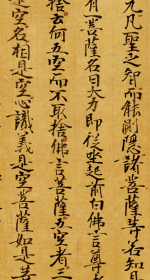 无凡聖之智而能測隱諸菩薩等各知
有一菩薩名曰大力即從坐起前白佛言尊者
捨云何五空而不取捨佛言菩薩五空者三
是空名相是空心識義是空菩薩如是等